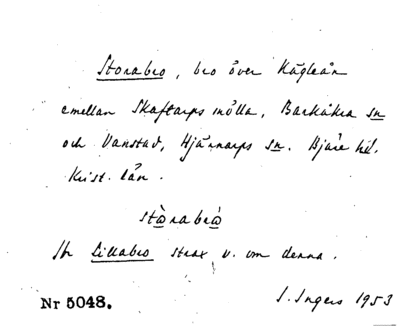 Storabro, bro över Kägleån
emellan Skaftarps mölla, Barkåkra sn
och Vanstad, Hjärnarps sn. Bjäre hd.
Krist. län.
stɷ̀rabrɷ̀
Jfr Lillabro strax v. om denna.
Nr 5048.
I. Ingers 1953